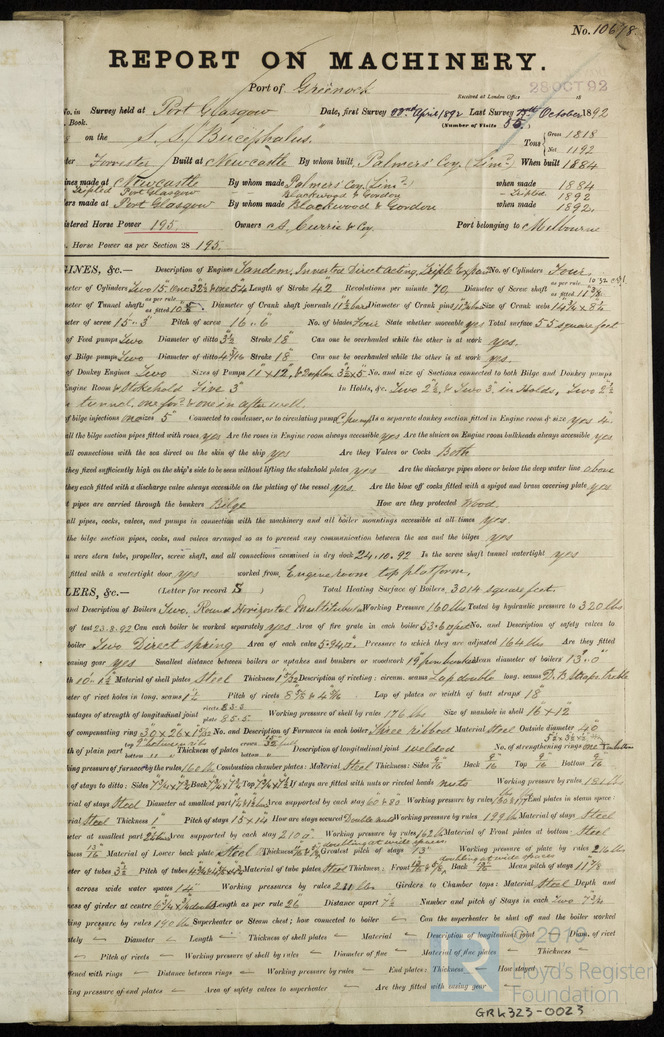 No. 10678
REPORT ON MACHINERY.
Port of Greenock
Received at London Office 28 OCT 92 18
No. in Survey held at Port Glasgow Date, first Survey 22nd April 1892 Last Survey October 1892
Book. (Number of Visits 55)
on the S.S. "Bucephalus" Tons Gross 1818 Net 1192
Forrester Built at Newcastle By whom built Palmers' Coy. (Lim.d) When built 1884
ines made at Newcastle By whom made Palmers' Coy (Lim.d) when made 1884
Tripled Port Glasgow Blackwood & Gordon Tripled 1892
ers made at Port Glasgow By whom made Blackwood & Gordon when made 1892.
istered Horse Power 195. Owners A. Currie & Coy Port belonging to Melbourne
. Horse Power as per Section 28 195.
GINES, &c.— Description of Engines Tandem, Inverted Direct Acting, Triple Expan. No. of Cylinders Four
meter of Cylinders Two 15 One 32½ & one 54 Length of Stroke 42 Revolutions per minute 70 Diameter of Screw shaft as per rule as fitted 11⅞
meter of Tunnel shaft as per rule as fitted Diameter of Crank shaft journals Diameter of Crank pins Size of Crank webs
meter of screw 15.3 Pitch of screw 16.6 No. of blades Four State whether moveable yes Total surface 55 square feet
of Feed pumps Two Diameter of ditto 3½ Stroke 18" Can one be overhauled while the other is at work yes.
of Bilge pumps Two Diameter of ditto 4 3/16 Stroke 18" Can one be overhauled while the other is at work yes.
of Donkey Engines Two Sizes of Pumps No. and size of Suctions connected to both Bilge and Donkey pumps
Engine Room & Stokehold Five 3" In Holds, &c. Two 2½, & Two 3" in Holds, Two 2½
tunnel, one for'd & one in after well.
of bilge injections one sizes 5" Connected to condenser, or to circulating pump Is a separate donkey suction fitted in Engine room & size yes 4"
all the bilge suction pipes fitted with roses yes Are the roses in Engine room always accessible yes Are the sluices on Engine room bulkheads always accessible yes
all connections with the sea direct on the skin of the ship yes Are they Valves or Cocks Both
they fixed sufficiently high on the ship's side to be seen without lifting the stokehold plates yes Are the discharge pipes above or below the deep water line above
they each fitted with a discharge valve always accessible on the plating of the vessel yes. Are the blow off cocks fitted with a spigot and brass covering plate yes
t pipes are carried through the bunkers Bilge How are they protected Wood.
all pipes, cocks, valves, and pumps in connection with the machinery and all boiler mountings accessible at all times yes.
the bilge suction pipes, cocks, and valves arranged so as to prevent any communication between the sea and the bilges yes
n were stern tube, propeller, screw shaft, and all connections examined in dry dock 24.10.92 Is the screw shaft tunnel watertight yes
fitted with a watertight door yes worked from Engine room top platform.
LERS, &c.— (Letter for record S) Total Heating Surface of Boilers 3014 square feet.
and Description of Boilers Two, Round Horizontal Multitubular Working Pressure 160 lbs Tested by hydraulic pressure to 320 lbs
of test 23.8.92 Can each boiler be worked separately yes Area of fire grate in each boiler No. and Description of safety valves to
boiler Two Direct spring Area of each valve 5.94 Pressure to which they are adjusted 164 lbs Are they fitted
easing gear yes Smallest distance between boilers or uptakes and bunkers or woodwork Mean diameter of boilers 13.0"
th 10.1½ Material of shell plates Steel Thickness Description of riveting: circum. seams Lap double long. seams D.B. Straps treble
eter of rivet holes in long. seams Pitch of rivets Lap of plates or width of butt straps 18"
centages of strength of longitudinal joint rivets 83.3 plate 85.5 Working pressure of shell by rules 176 lbs Size of manhole in shell 16 x 12"
of compensating ring 30 x 26 x No. and Description of Furnaces in each boiler Three ribbed Material Steel Outside diameter 40"
th of plain part top bottom Thickness of plates crown bottom Description of longitudinal joint welded No. of strengthening rings
king pressure of furnace by the rules 160 lbs Combustion chamber plates: Material Steel Thickness: Sides 9/16 Back 9/16 Top 9/16 Bottom
of stays to ditto: Sides Back Top If stays are fitted with nuts or riveted heads nuts Working pressure by rules 181 lbs
rial of stays Steel Diameter at smallest part Area supported by each stay Working pressure by rules End plates in steam space:
rial Steel Thickness 1" Pitch of stays 15 x 14 How are stays secured Double nuts Working pressure by rules 199 lbs Material of stays Steel
eter at smallest part Area supported by each stay 210 Working pressure by rules 162 lbs Material of Front plates at bottom Steel
ness 13/16 Material of Lower back plate Steel Thickness doubling at wide spaces Greatest pitch of stays 13" Working pressure of plate by rules 216 lbs
eter of tubes 3½ Pitch of tubes Material of tube plates Steel Thickness: Front Back 9/16 doubling at wide spaces Mean pitch of stays
across wide water spaces 14" Working pressures by rules Girders to Chamber tops: Material Steel Depth and
ness of girder at centre Length as per rule 26" Distance apart 7½ Number and pitch of Stays in each Two 7¾
ing pressure by rules 190 lbs Superheater or Steam chest; how connected to boiler — Can the superheater be shut off and the boiler worked
ately — Diameter — Length — Thickness of shell plates — Material — Description of longitudinal joint — Diam. of rivet
— Pitch of rivets — Working pressure of shell by rules — Diameter of flue — Material of flue plates — Thickness —
ffened with rings — Distance between rings — Working pressure by rules — End plates: Thickness — How stayed
ing pressure of end plates — Area of safety valves to superheater — Are they fitted with easing gear —
© 2019
Lloyd's Register
Foundation
GRK323-0023